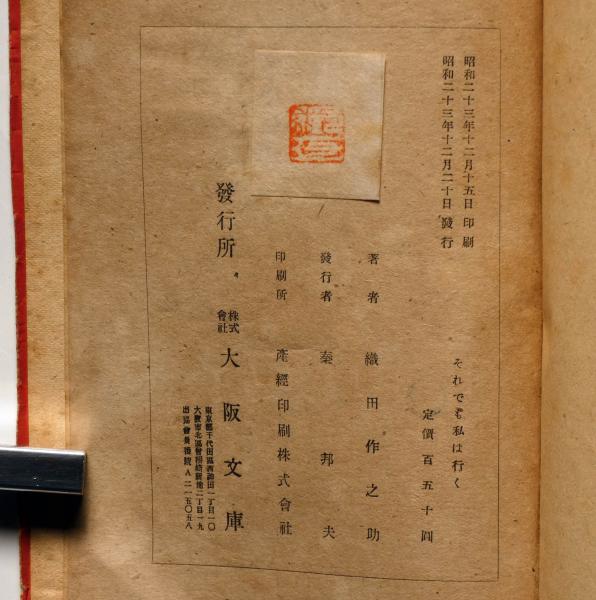 昭和二十三年十二月十五日 印刷
昭和二十三年十二月二十日 發行
それでも私は行く
定價百五十圓
著者 織田作之助
發行者 秦邦夫
印刷所 產經印刷株式會社
發行所
株式會社 大阪文庫
東京都千代田區西神田一丁目一〇
大阪市北區曾根崎新地二丁目一九
出協會員番號 A 二一五〇五八